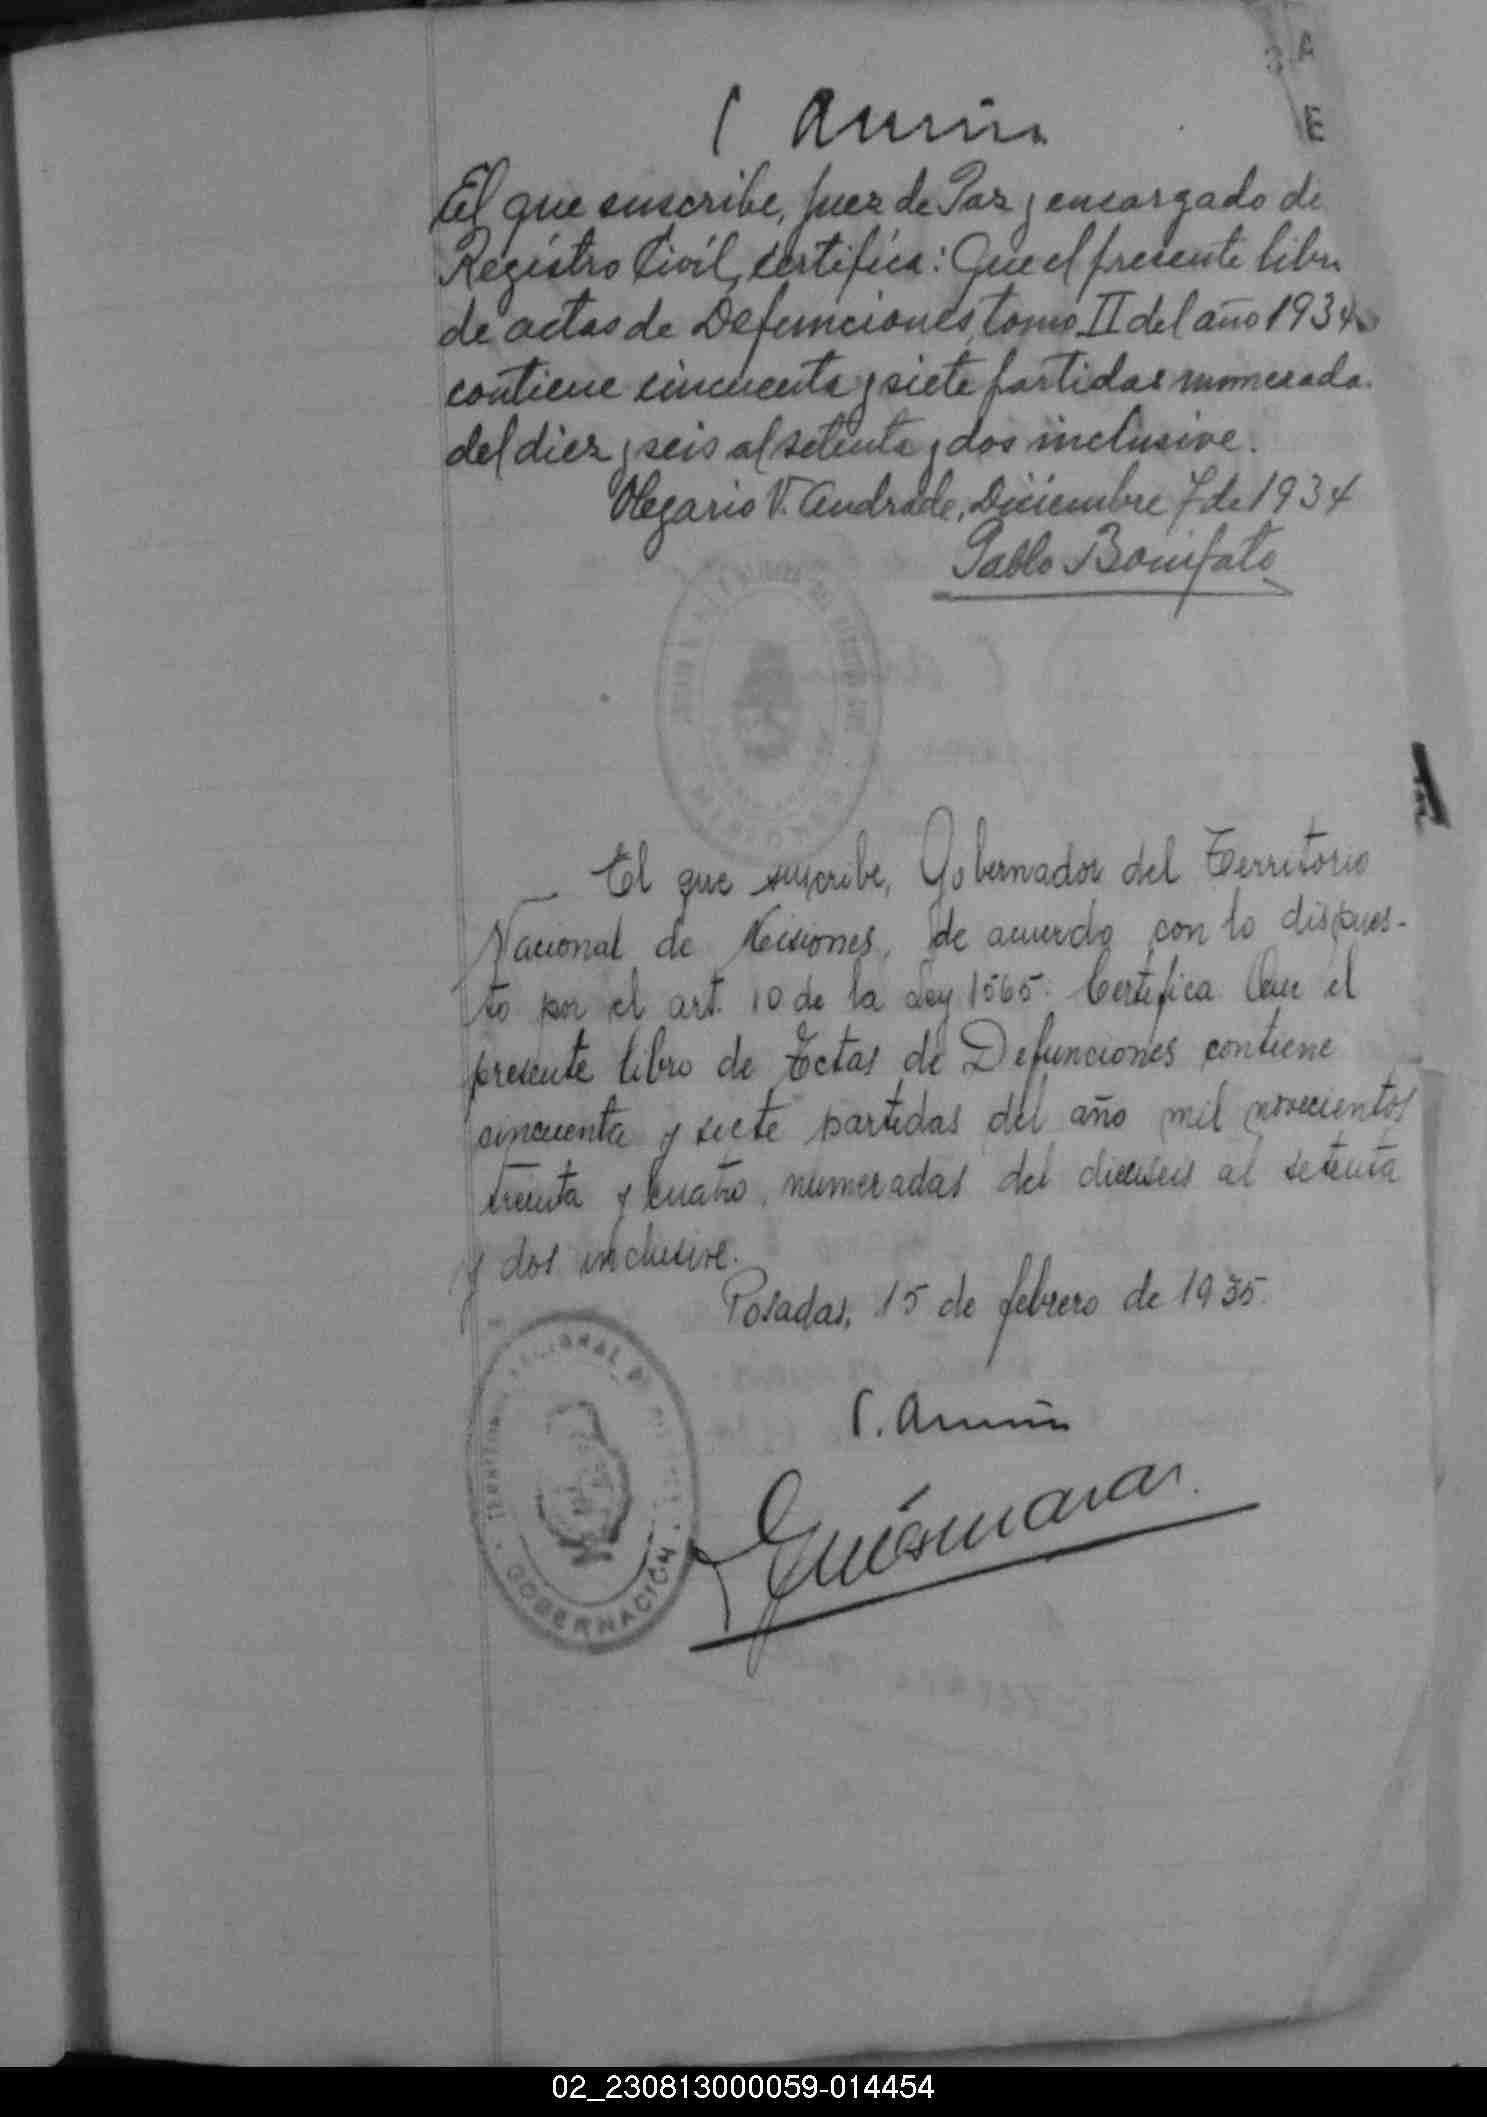 El que suscribe, Juez de Paz y encargado de
Registro Civil, certifica: Que el presente libro
de actas de Defunciones, tomo II del año 1934
contiene cincuenta y siete partidas numerada.
del diez y seis al setenta y dos inclusive.
Olegario V. Andrade, Diciembre 7 de 1934
Pablo Bonifato
MISIONES
El que suscribe, Gobernador del Territorio
Nacional de Misiones, de acuerdo con lo dispues-
to por el art. 10 de la Ley 1565: Certifica Que el
presente libro de Actas de Defunciones contiene
cincuenta y siete partidas del año mil novecientos
treinta y cuatro, numeradas del dieciseis al setenta
y dos inclusive.
Posadas, 15 de febrero de 1935.
GOBERNACIÓN
02_230813000059-014454